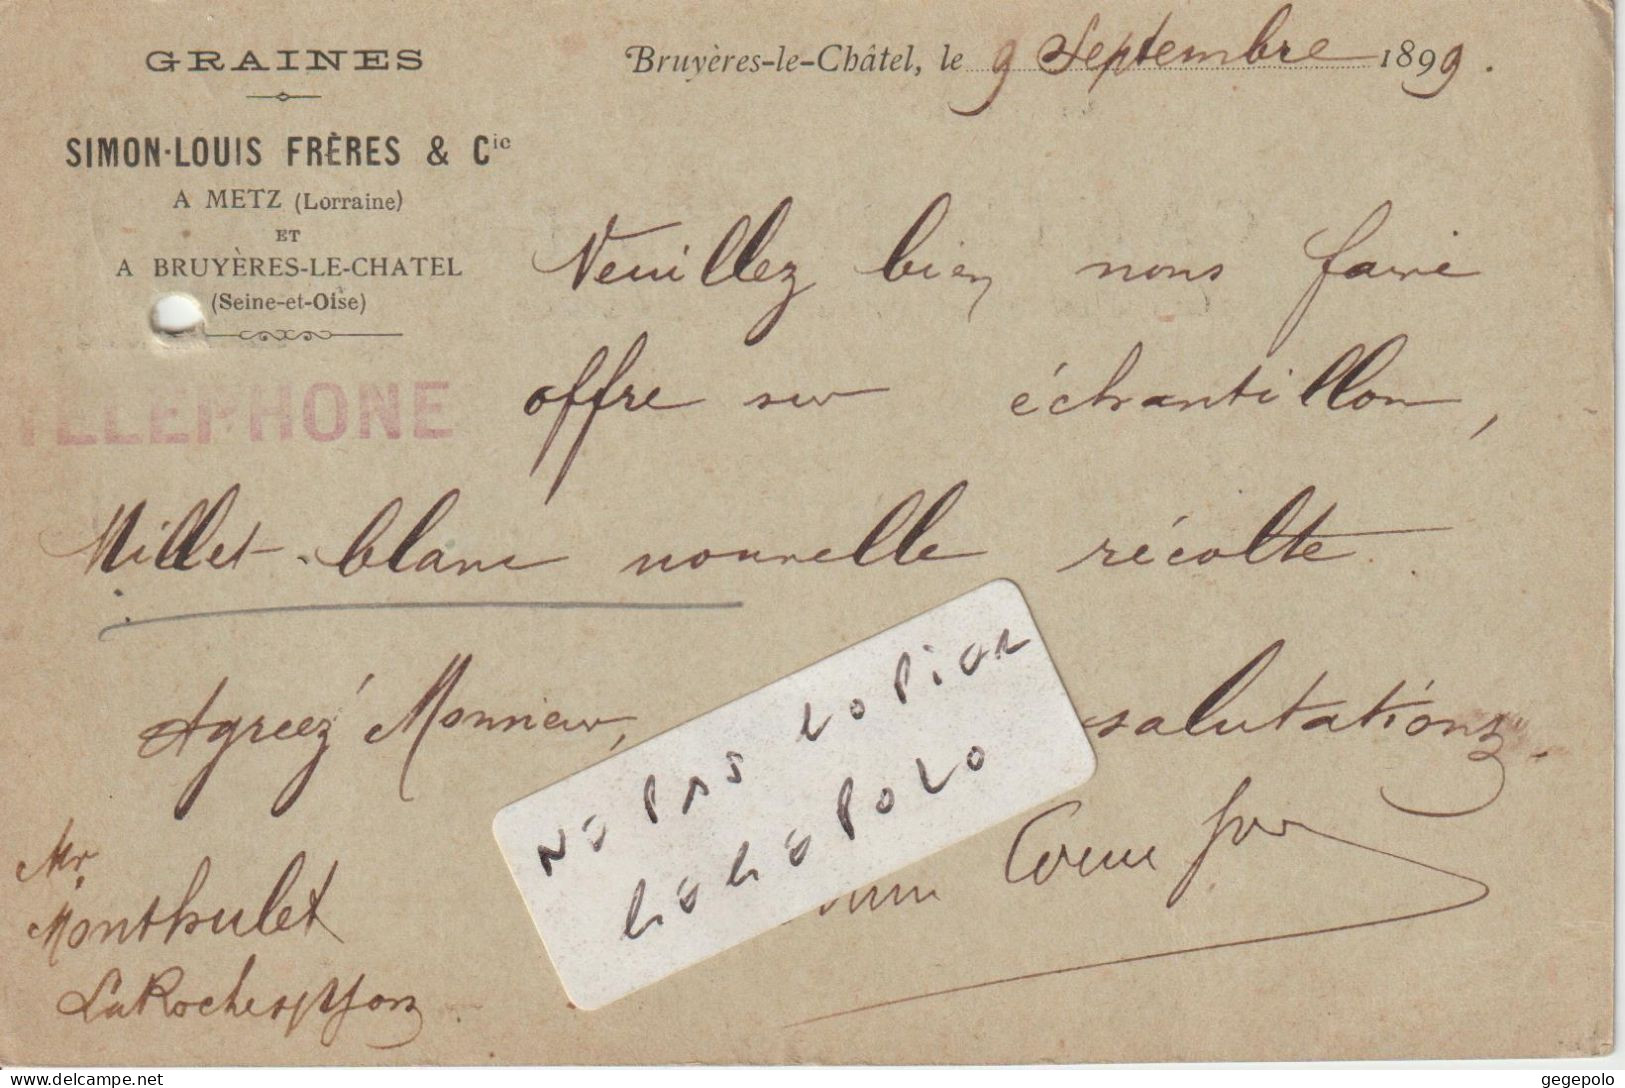 GRAINES
SIMON-LOUIS FRÈRES & Cie
A METZ (Lorraine)
ET
A BRUYÈRES-LE-CHATEL
(Seine-et-Oise)
TELEPHONE
Bruyères-le-Châtel, le 9 Septembre 1899.
Veuillez bien nous faire
offre sur échantillon,
Millet blanc nouvelle récolte.
Agréez Monsieur, salutations.
NE PAS COPIER
GEGEPOLO
Mr
Monthulet
La Roche s/Yon
delcampe.net
gegepolo